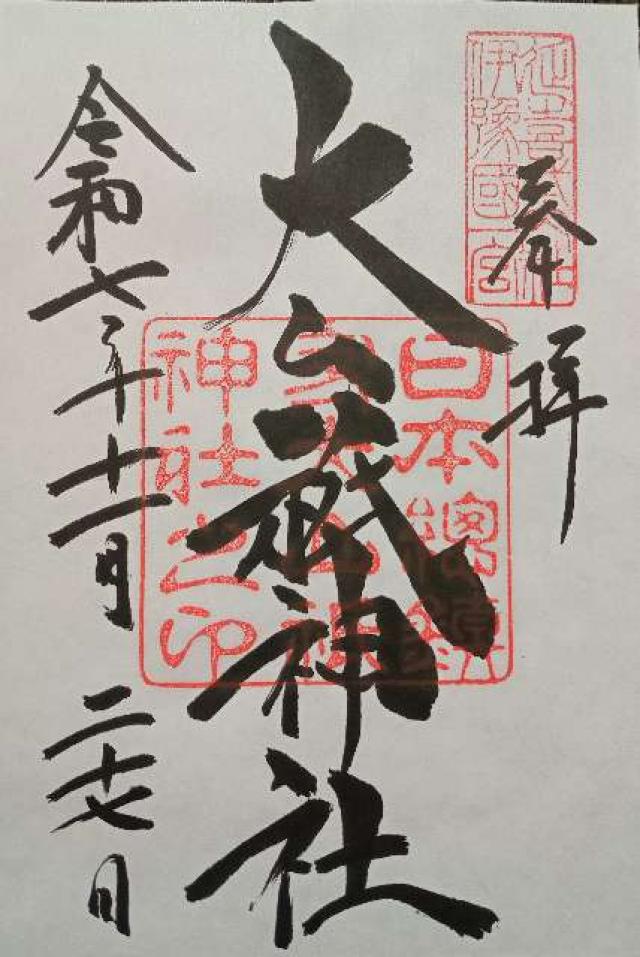 伊豫國一宮
奉拝
日本總鎮
守大山祇
神社之印
大山祇神社
令和七年十一月二十七日